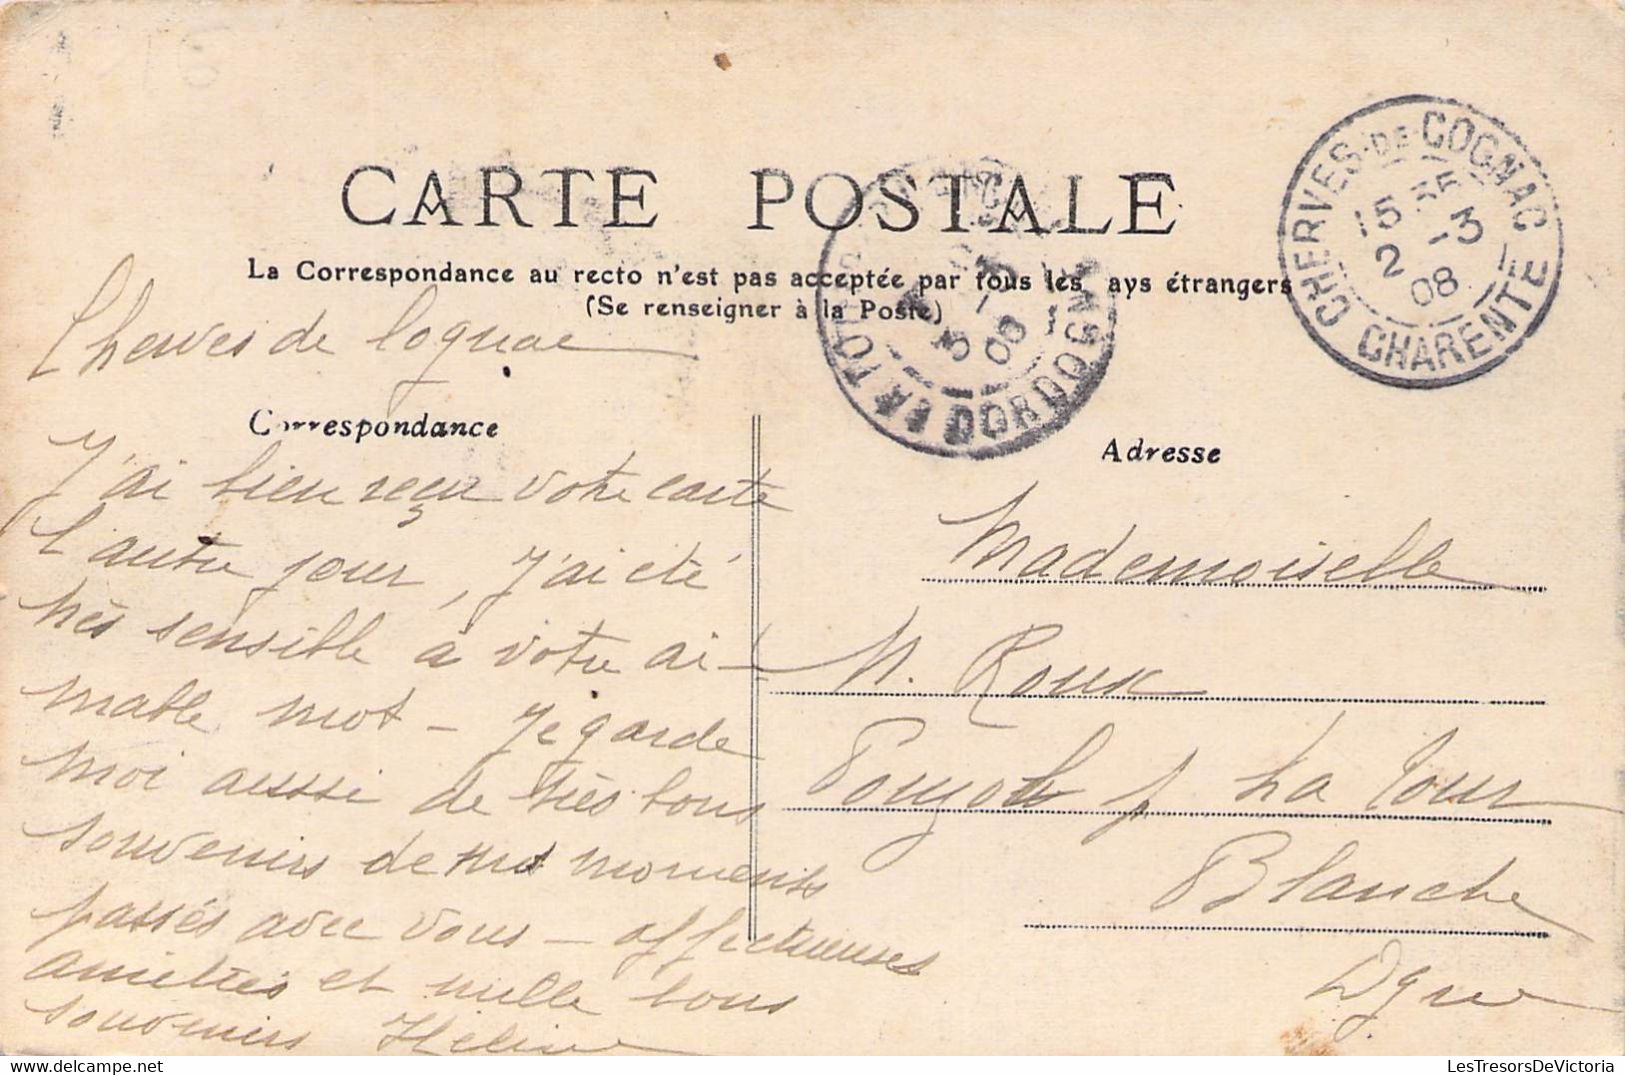 CARTE POSTALE
La Correspondance au recto n'est pas acceptée par tous les ays étrangers
(Se renseigner à la Poste)
CHERVES-DE-COGNAC
15 35
2 - 3
08
CHARENTE
LA TOUR
3
08
DORDOGNE
Cherves de Cognac
Correspondance
J'ai bien reçu votre carte
l'autre jour, J'ai été
très sensible à votre ai-
mable mot - Je garde
moi aussi de très bons
souvenirs de nos moments
passés avec vous - affectueuses
amitiés et mille bons
souvenirs Hélène
Adresse
Mademoiselle
M. Roux
p La Tour
Blanche
Dgne
LesTresorsDeVictoria